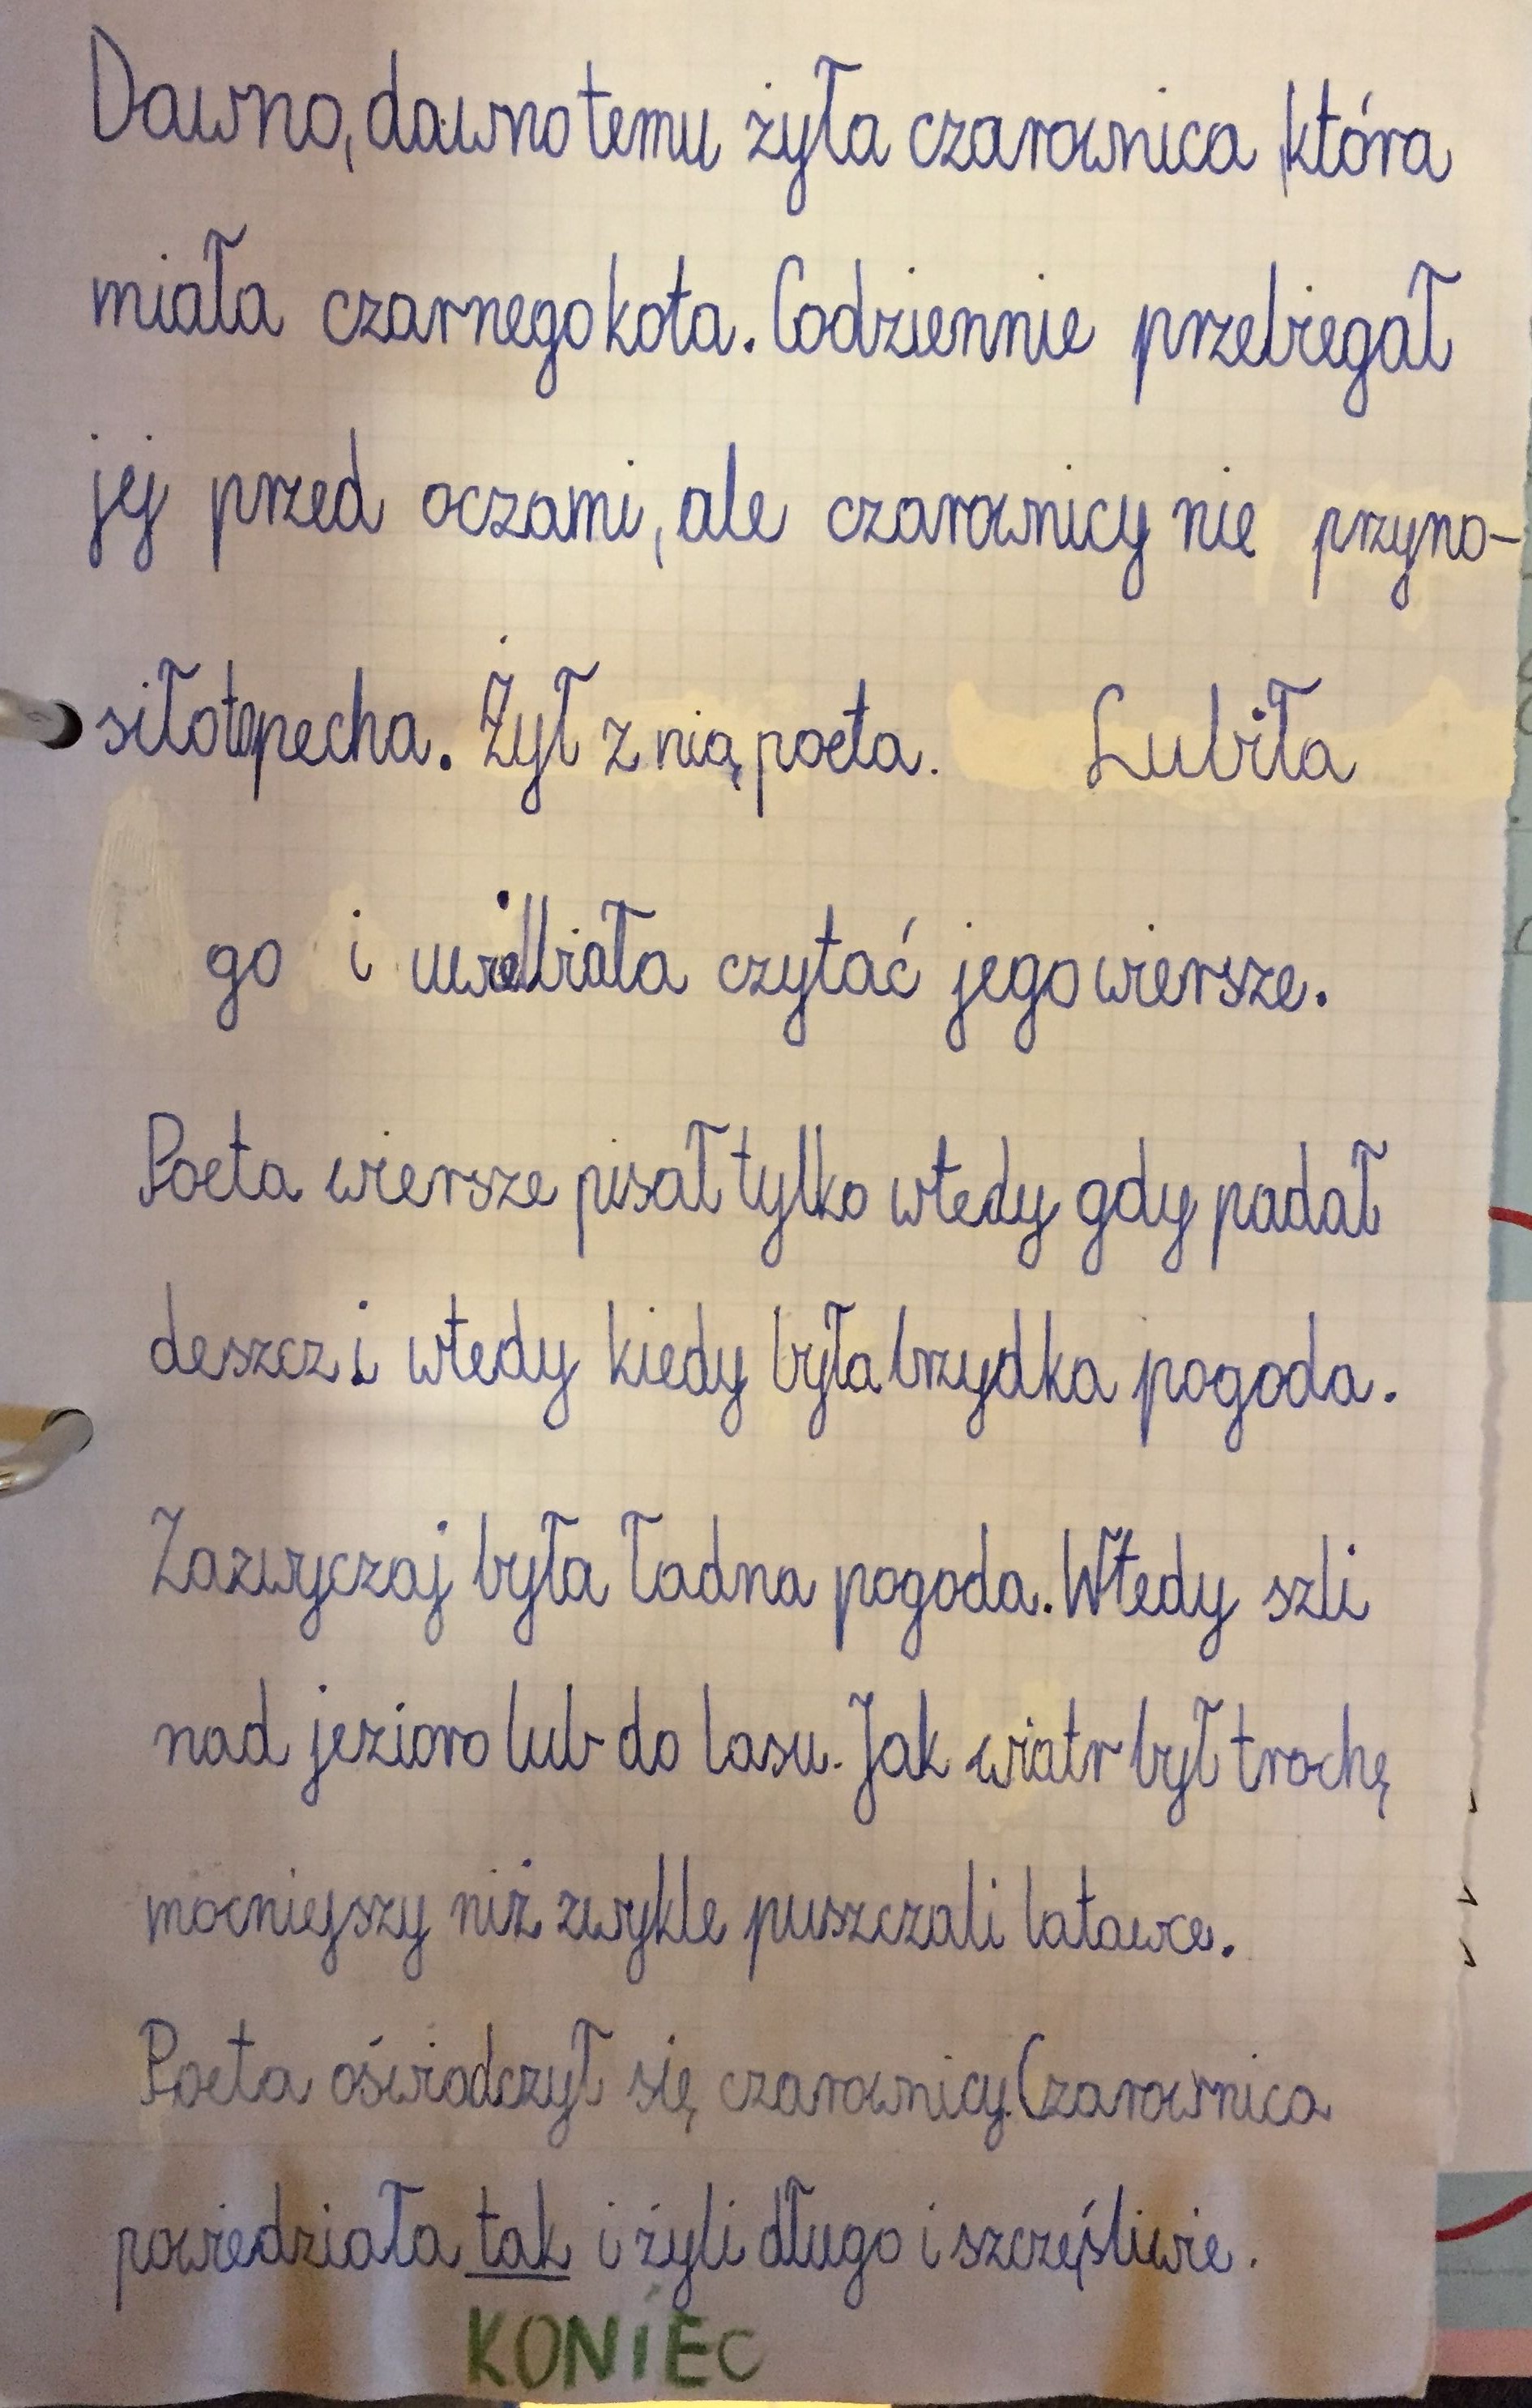 Dawno, dawno temu żyła czarownica, która
miała czarnego kota. Codziennie przebiegał
jej przed oczami, ale czarownicy nie przyno-
siło to pecha. Żył z nią poeta. Lubiła
go i uwielbiała czytać jego wiersze.
Poeta wiersze pisał tylko wtedy gdy padał
deszcz i wtedy kiedy była brzydka pogoda.
Zazwyczaj była ładna pogoda. Wtedy szli
nad jezioro lub do lasu. Jak wiatr był trochę
mocniejszy niż zwykle puszczali latawce.
Poeta oświadczył się czarownicy. Czarownica
powiedziała tak i żyli długo i szczęśliwie.
KONIEC